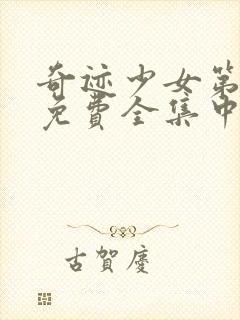 奇迹少女第
免费全集中
古賀慶